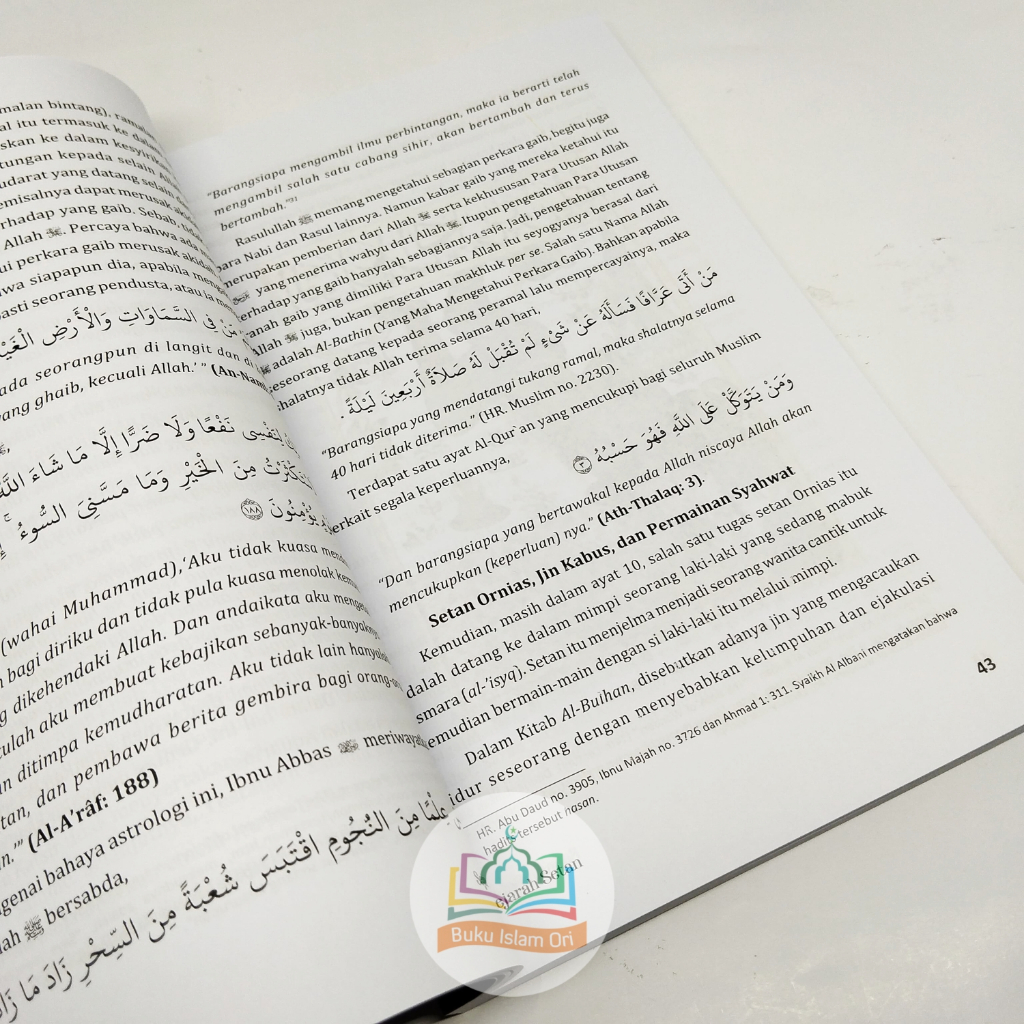 malan bintang), ramalan
al itu termasuk ke dalam
skan ke dalam kesyirikan
tungan kepada selain Allah
udarat yang datang selain dari
emisalnya dapat merusak akidah
erhadap yang gaib. Sebab, tidak
Allah ﷻ. Percaya bahwa ada
ui perkara gaib merusak akidah
wa siapapun dia, apabila
asti seorang pendusta, atau ia
مَنْ فِي السَّمَاوَاتِ وَالْأَرْضِ الْغَيْبَ
ada seorangpun di langit dan di
ang ghaib, kecuali Allah.'" (An-Naml
لِنَفْسِي نَفْعًا وَلَا ضَرًّا إِلَّا مَا شَاءَ اللَّهُ
مِنَ الْخَيْرِ وَمَا مَسَّنِيَ السُّوءُ
يُؤْمِنُونَ ١٨٨
(wahai Muhammad),'Aku tidak kuasa
n bagi diriku dan tidak pula kuasa menolak
g dikehendaki Allah. Dan andaikata aku
tulah aku membuat kebajikan sebanyak-banyaknya
n ditimpa kemudharatan. Aku tidak lain hanyalah
tan, dan pembawa berita gembira bagi orang-
n.'" (Al-A'râf: 188)
genai bahaya astrologi ini, Ibnu Abbas meriwayatkan
lah ﷺ bersabda,
عِلْمًا مِنَ النُّجُومِ اقْتَبَسَ شُعْبَةً مِنَ السِّحْرِ زَادَ مَا زَادَ
"Barangsiapa mengambil ilmu perbintangan, maka ia berarti telah
mengambil salah satu cabang sihir, akan bertambah dan terus
bertambah."³¹
Rasulullah ﷺ memang mengetahui sebagian perkara gaib, begitu juga
para Nabi dan Rasul lainnya. Namun kabar gaib yang mereka ketahui itu
merupakan pemberian dari Allah ﷻ serta kekhususan Para Utusan Allah
yang menerima wahyu dari Allah ﷻ. Itupun pengetahuan Para Utusan
terhadap yang gaib hanyalah sebagiannya saja. Jadi, pengetahuan tentang
ranah gaib yang dimiliki Para Utusan Allah itu seyogyanya berasal dari
Allah ﷻ juga, bukan pengetahuan makhluk per se. Salah satu Nama Allah
ﷻ adalah Al-Bathin (Yang Maha Mengetahui Perkara Gaib). Bahkan apabila
seseorang datang kepada seorang peramal lalu mempercayainya, maka
shalatnya tidak Allah terima selama 40 hari,
مَنْ أَتَى عَرَّافًا فَسَأَلَهُ عَنْ شَيْءٍ لَمْ تُقْبَلْ لَهُ صَلَاةٌ أَرْبَعِينَ لَيْلَةً .
"Barangsiapa yang mendatangi tukang ramal, maka shalatnya selama
40 hari tidak diterima." (HR. Muslim no. 2230).
Terdapat satu ayat Al-Qur`an yang mencukupi bagi seluruh Muslim
terkait segala keperluannya,
وَمَنْ يَتَوَكَّلْ عَلَى اللَّهِ فَهُوَ حَسْبُهُ ٣
"Dan barangsiapa yang bertawakal kepada Allah niscaya Allah akan
mencukupkan (keperluan) nya." (Ath-Thalaq: 3).
Setan Ornias, Jin Kabus, dan Permainan Syahwat
Kemudian, masih dalam ayat 10, salah satu tugas setan Ornias itu
dalah datang ke dalam mimpi seorang laki-laki yang sedang mabuk
smara (al-'isyq). Setan itu menjelma menjadi seorang wanita cantik untuk
emudian bermain-main dengan si laki-laki itu melalui mimpi.
Dalam Kitab Al-Buihan, disebutkan adanya jin yang mengacaukan
idur seseorang dengan menyebabkan kelumpuhan dan ejakulasi
HR. Abu Daud no. 3905, Ibnu Majah no. 3726 dan Ahmad 1: 311. Syaikh Al Albani mengatakan bahwa
hadits tersebut hasan.
ejarah Setan
43
Buku Islam Ori